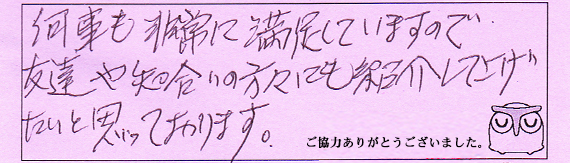 何事も非常に満足していますので
友達や知合いの方々にも紹介してあげ
たいと思っております。
ご協力ありがとうございました。